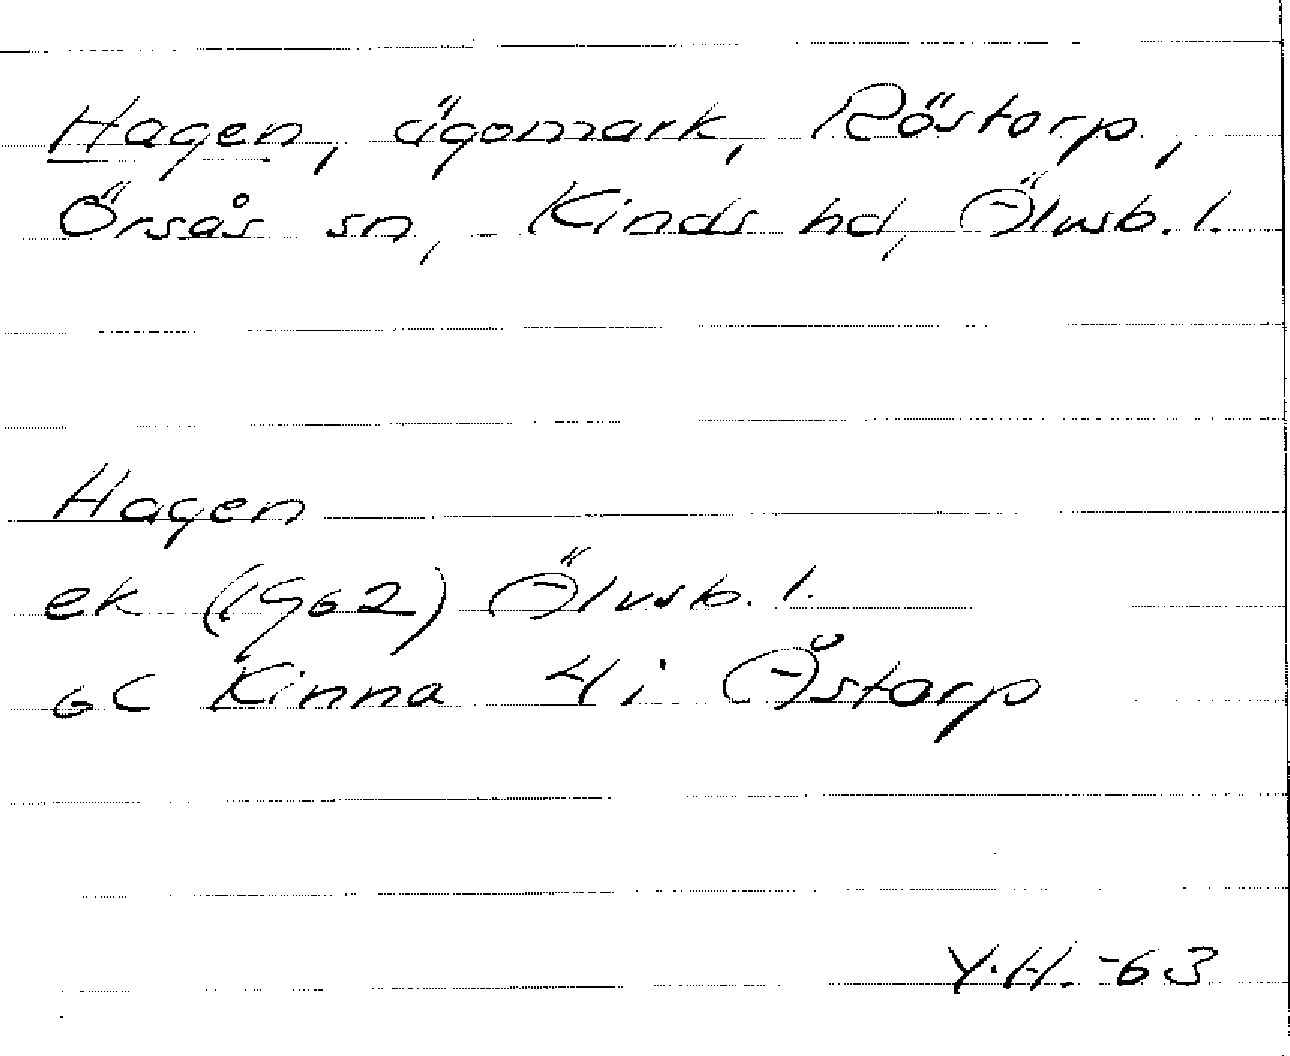 Hagen, ägomark, Röstorp,
Örsås sn, Kinds hd, Älvsb. l.
Hagen
ek (1962) Älvsb. l.
6C Kinna 4i Åstarp
Y.H. -63